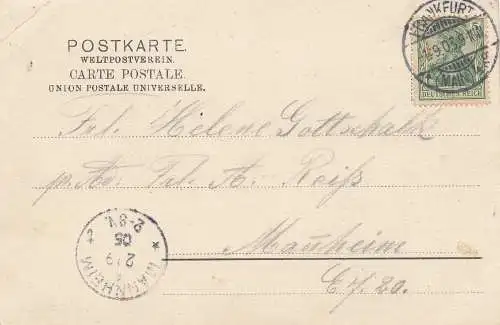 POSTKARTE.
WELTPOSTVEREIN.
CARTE POSTALE.
UNION POSTALE UNIVERSELLE.
FRANKFURT
(MAIN)
DEUTSCHES REICH
Frl. Helene Gottschalk
p. Ad. Frl. A. Reiß
Mannheim
E 7. 20.
MANNHEIM
2/9
05
2-8V